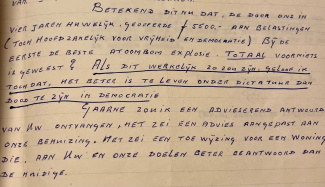 BETEKEND DIT NU DAT, DE DOOR ONS IN
VIER JAREN HUWELIJK, GEOFFERDE ƒ 5500.- AAN BELASTINGEN
(TOCH HOOFDZAKELIJK VOOR VRIJHEID EN DEMOCRATIE) BIJ DE
EERSTE DE BESTE ATOOMBOM EXPLOSIE TOTAAL VOOR NIETS
IS GEWEEST? ALS DIT WERKELIJK ZO ZOU ZIJN, GELOOF IK
TOCH DAT, HET BETER IS TE LEVEN ONDER DICTATUUR DAN
DOOD TE ZIJN IN DEMOCRATIE
GAARNE ZOU IK EEN ADVISEREND ANTWOORD
VAN UW ONTVANGEN, HET ZEI EEN ADVIES AANGEPAST AAN
ONZE BEHUIZING. HET ZEI EEN TOEWIJZING VOOR EEN WONING
DIE, AAN UW EN ONZE DOELEN BETER BEANTWOORD DAN
DE HUIDIGE.